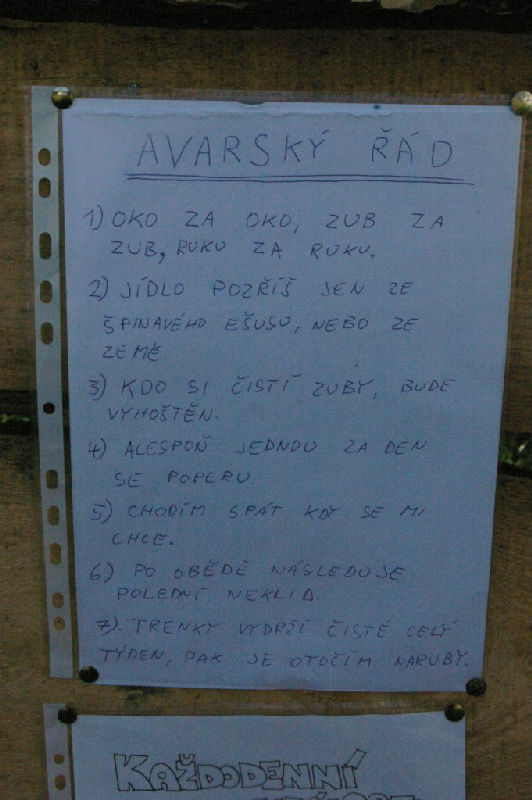 AVARSKÝ ŘÁD
1) OKO ZA OKO, ZUB ZA
ZUB, RUKU ZA RUKU.
2) JÍDLO POZŘÍŠ JEN ZE
ŠPINAVÉHO EŠUSU, NEBO ZE
ZEMĚ.
3) KDO SI ČISTÍ ZUBY, BUDE
VYHOŠTĚN.
4) ALESPOŇ JEDNOU ZA DEN
SE POPERU.
5) CHODÍM SPÁT KDY SE MI
CHCE.
6) PO OBĚDĚ NÁSLEDUJE
POLEDNÍ NEKLID.
7). TRENKY VYDRŽÍ ČISTÉ CELÝ
TÝDEN, PAK JE OTOČÍM NARUBY.
KAŽDODENNÍ